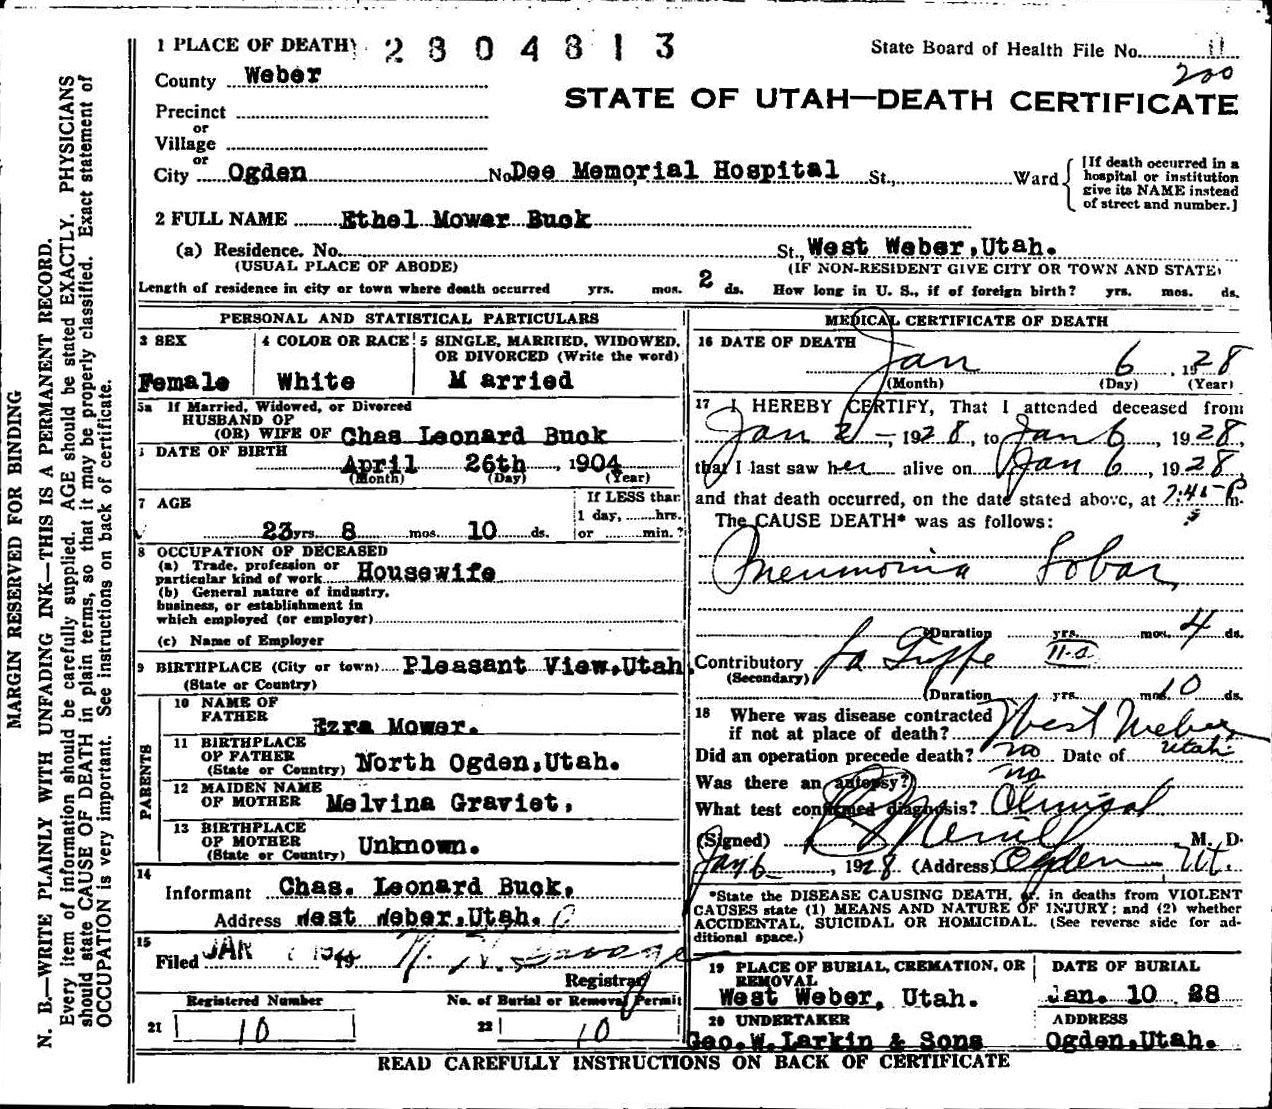 1 PLACE OF DEATH 2804813
State Board of Health File No. 11
200
County Weber
STATE OF UTAH—DEATH CERTIFICATE
Precinct
or
Village
or
City Ogden No. Dee Memorial Hospital St., Ward
[If death occurred in a
hospital or institution
give its NAME instead
of street and number.]
2 FULL NAME Ethel Mower Buck
(a) Residence. No. St., West Weber, Utah.
(USUAL PLACE OF ABODE) (IF NON-RESIDENT GIVE CITY OR TOWN AND STATE)
Length of residence in city or town where death occurred yrs. mos. 2 ds. How long in U. S., if of foreign birth? yrs. mos. ds.
PERSONAL AND STATISTICAL PARTICULARS
3 SEX 4 COLOR OR RACE 5 SINGLE, MARRIED, WIDOWED,
OR DIVORCED (Write the word)
Female White M arried
5a If Married, Widowed, or Divorced
HUSBAND OF
(OR) WIFE OF Chas Leonard Buck
DATE OF BIRTH
April 26th, 1904
(Month) (Day) (Year)
7 AGE
If LESS than
1 day, hrs.
23 yrs. 8 mos. 10 ds. or min.?
8 OCCUPATION OF DECEASED
(a) Trade, profession or
particular kind of work Housewife
(b) General nature of industry,
business, or establishment in
which employed (or employer)
(c) Name of Employer
9 BIRTHPLACE (City or town) Pleasant View, Utah.
(State or Country)
PARENTS
10 NAME OF
FATHER Ezra Mower.
11 BIRTHPLACE
OF FATHER
(State or Country) North Ogden, Utah.
12 MAIDEN NAME
OF MOTHER Melvina Graviet,
13 BIRTHPLACE
OF MOTHER
(State or Country) Unknown.
14
Informant Chas. Leonard Buck,
Address West Weber, Utah.
15
Filed JAN 19
Registrar
Registered Number No. of Burial or Removal Permit
21 10 22 10
MEDICAL CERTIFICATE OF DEATH
16 DATE OF DEATH
Jan 6, 1928
(Month) (Day) (Year)
17 I HEREBY CERTIFY, That I attended deceased from
Jan 2 -, 1928, to Jan 6, 1928,
that I last saw her alive on Jan 6, 1928,
and that death occurred, on the date stated above, at 7:45 P m.
The CAUSE DEATH* was as follows:
Pneumonia Lobar,
(Duration yrs. mos. 4 ds.
Contributory La Grippe 11-a
(Secondary)
(Duration yrs. mos. 10 ds.
18 Where was disease contracted
if not at place of death? West Weber
Utah
Did an operation precede death? no Date of
Was there an autopsy? no
What test confirmed diagnosis? Clinical
(Signed) Merrill M. D.
Jan 6, 1928 (Address) Ogden Ut.
*State the DISEASE CAUSING DEATH, or, in deaths from VIOLENT
CAUSES state (1) MEANS AND NATURE OF INJURY; and (2) whether
ACCIDENTAL, SUICIDAL OR HOMICIDAL. (See reverse side for ad-
ditional space.)
19 PLACE OF BURIAL, CREMATION, OR
REMOVAL
West Weber, Utah.
DATE OF BURIAL
Jan. 10 28
20 UNDERTAKER
Geo. W. Larkin & Sons
ADDRESS
Ogden, Utah.
READ CAREFULLY INSTRUCTIONS ON BACK OF CERTIFICATE
MARGIN RESERVED FOR BINDING
N. B.—WRITE PLAINLY WITH UNFADING INK—THIS IS A PERMANENT RECORD.
Every item of information should be carefully supplied. AGE should be stated EXACTLY. PHYSICIANS
should state CAUSE OF DEATH in plain terms, so that it may be properly classified. Exact statement of
OCCUPATION is very important. See instructions on back of certificate.